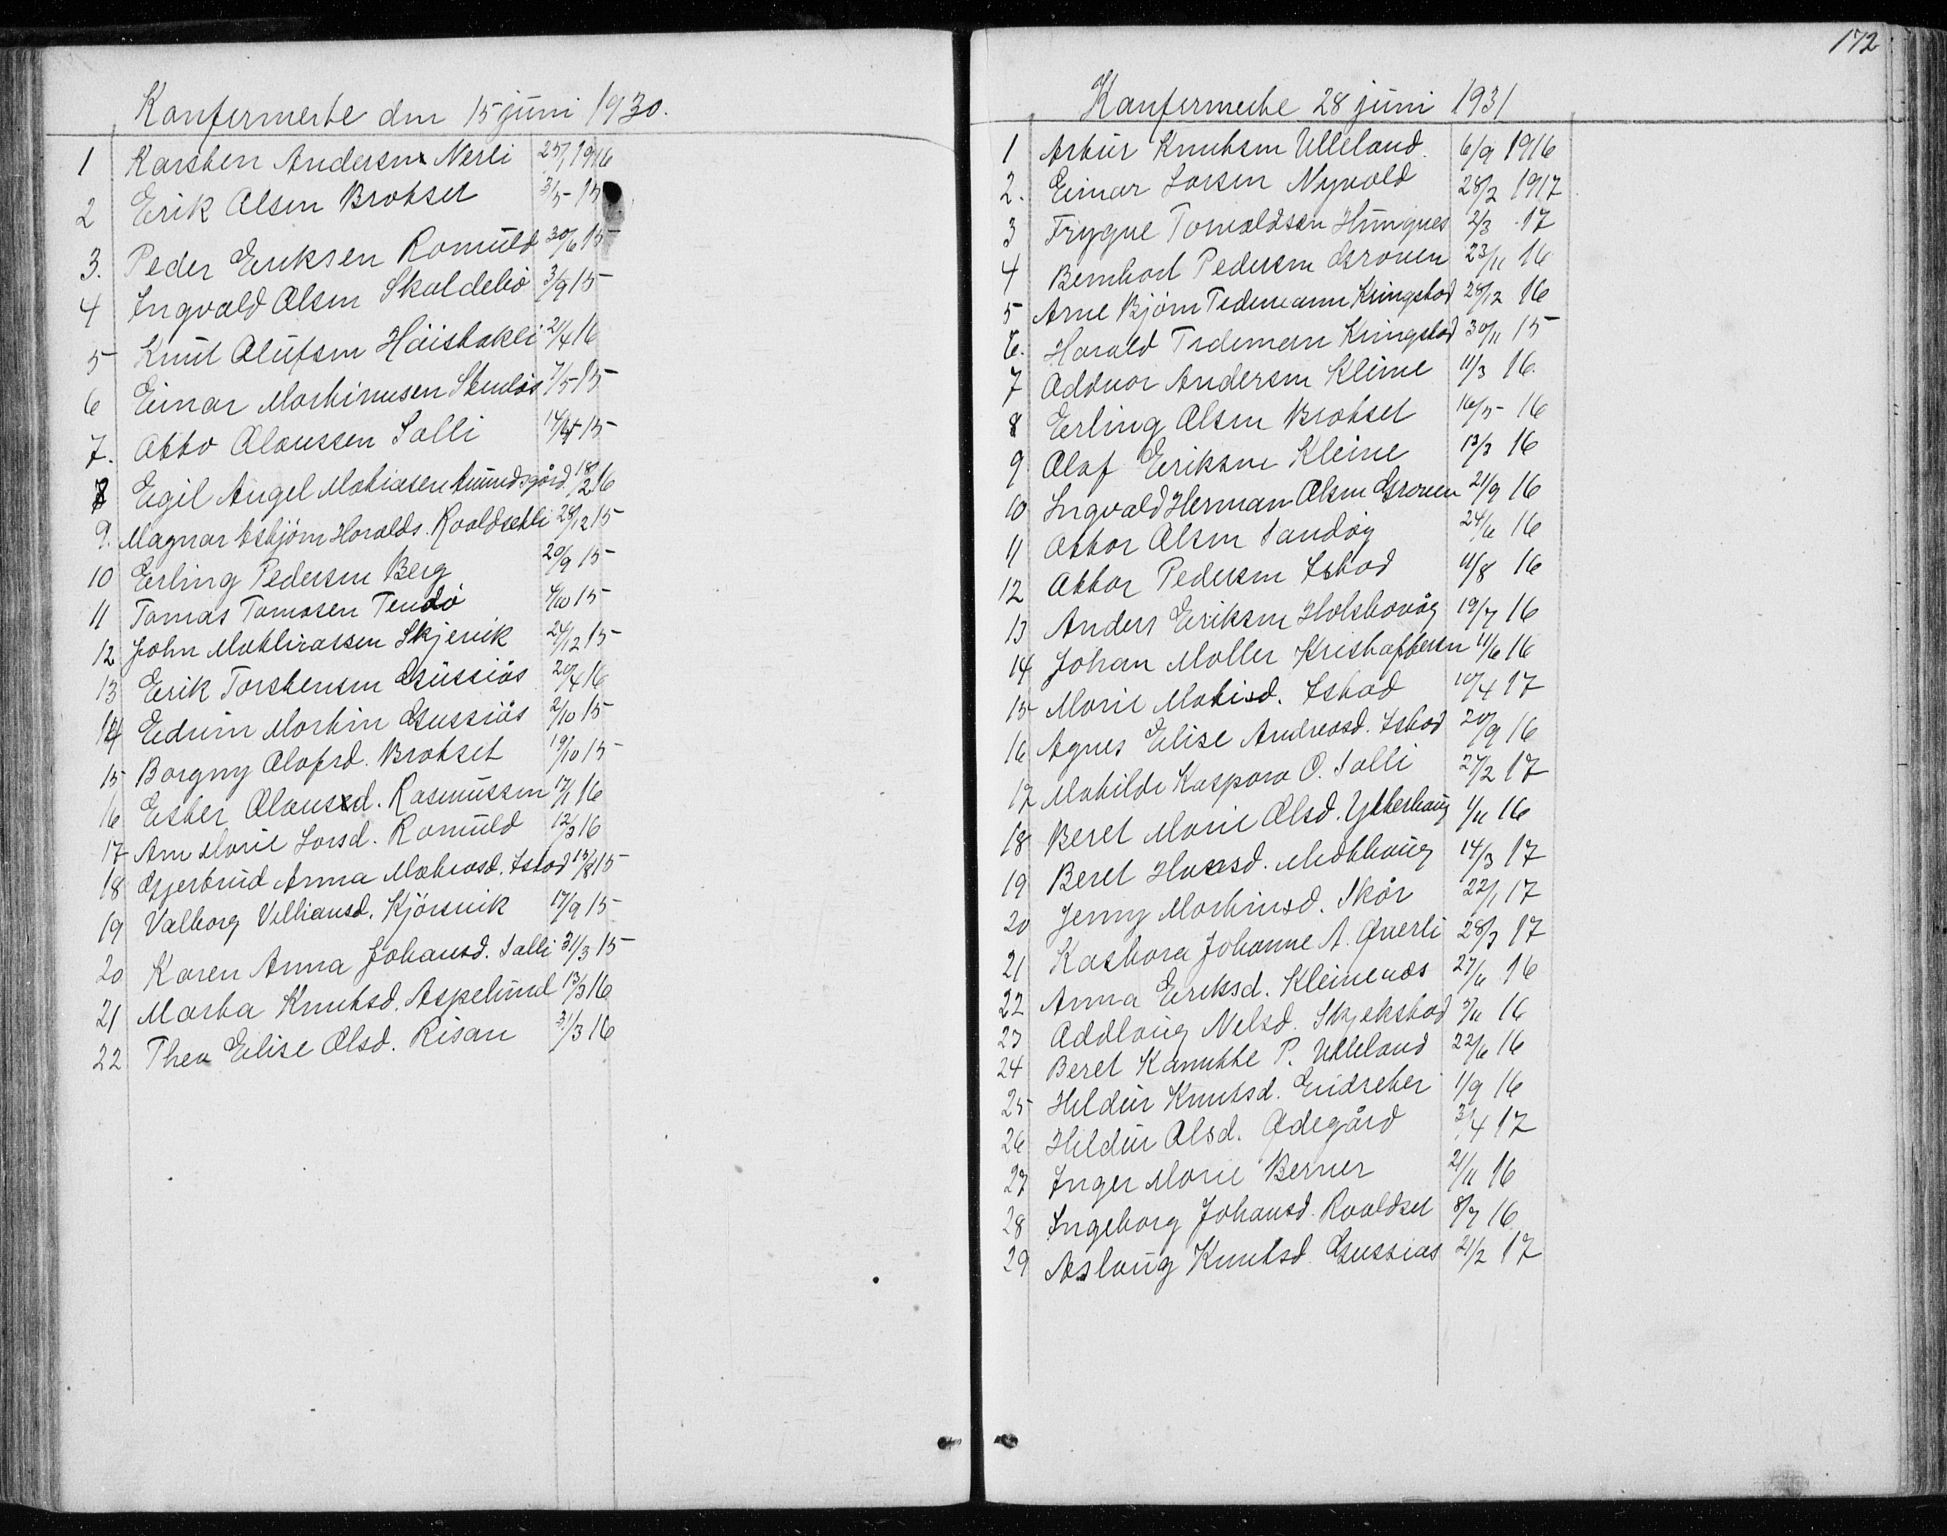 Konfermerte den 15 juni 1930.
1 Karsten Andersen Nerli 25/1 1916
2 Erik Olsen Brotset 3/5 15
3. Peder Eriksen Romuld 30/6 15
4 Ingvald Olsen Skaldebø 3/9 15
5 Knut Olufsen Höistakli 21/4 16
6 Einar Martinusen Stenløs 7/5 15
7. Otto Olaussen Salli 15
8 Egil Angel Matiasen Amundsgård 18/2 16
9. Magnar Asbjørn Haralds. Roaldsetli 28/12 15
10 Erling Pedersen Berg 20/9 15
11 Tomas Tomasen Tendø 4/10 15
12 John Mathiassen Skjervik 24/12 15
13 Erik Torstensen Gussiås 20/4 16
14 Edvin Martin Gussiås 2/10 15
15 Borgny Olafsd. Brotset 19/10 15
16 Ester Olausd. Rasmussen 17/1 16
17 Ann Marie Larsd. Romuld 12/3 16
18 Gjertrud Anna Mathiasd. Istad 13/8 15
19 Valborg Villiamsd. Kjörsvik 17/9 15
20 Karen Anna Johansd. Salli 31/3 15
21 Marta Knutsd. Aspelund 13/3 16
22 Thea Elise Olsd. Risan 31/3 16
172
Konfermerte 28 juni 1931
1 Artur Knutsen Ulleland. 6/9 1916
2. Einar Larsen Nyvold 28/2 1917
3 Trygve Tomaldsen Hungnes 2/3 17
4 Bernhart Pedersen Groven 23/11 16
5 Arne Bjørn Tidemann Kringstad 28/12 16
6. Harald Tideman Kringstad 30/11 15
7 Oddvar Andersen Kleive 11/3 16.
8 Erling Olsen Brotset 16/5 16
9 Olaf Eriksen Kleive 13/3 16
10 Ingvald Herman Olsen Groven 21/9 16
11 Ottar Olsen Sandøy 24/6 16
12 Ottar Pedersen Istad 11/8 16
13 Anders Eriksen Holshavåg 19/7 16
14 Johan Møller Kristoffersen 11/6 16
15 Marie Matisd. Istad 10/4 17
16 Agnes Elise Andreasd. Istad 20/9 16
17 Matilde Kaspara O. Salli 27/2 17
18 Beret Marie Olsd. Ytterhaug 1/11 16
19 Beret Hansd. Midthaug 14/3 17
20 Jenny Martinsd. Skår 22/1 17
21 Kastora Johanne A. Øverli 28/3 17
22 Anna Eriksd. Kleivenæs 27/6 16
23 Oddlaug Nilsd. Skjekstad 5/11 16
24 Beret Kanutte P. Ulleland 22/6 16
25 Hildur Knutsd. Eidseter 1/9 16
26 Hildur Olsd. Ødegård 3/4 17
27 Inger Marie Berner 21/11 16
28 Ingeborg Johansd. Roaldset 8/7 16
29 Aslaug Knutsd. Gussias 21/2 17